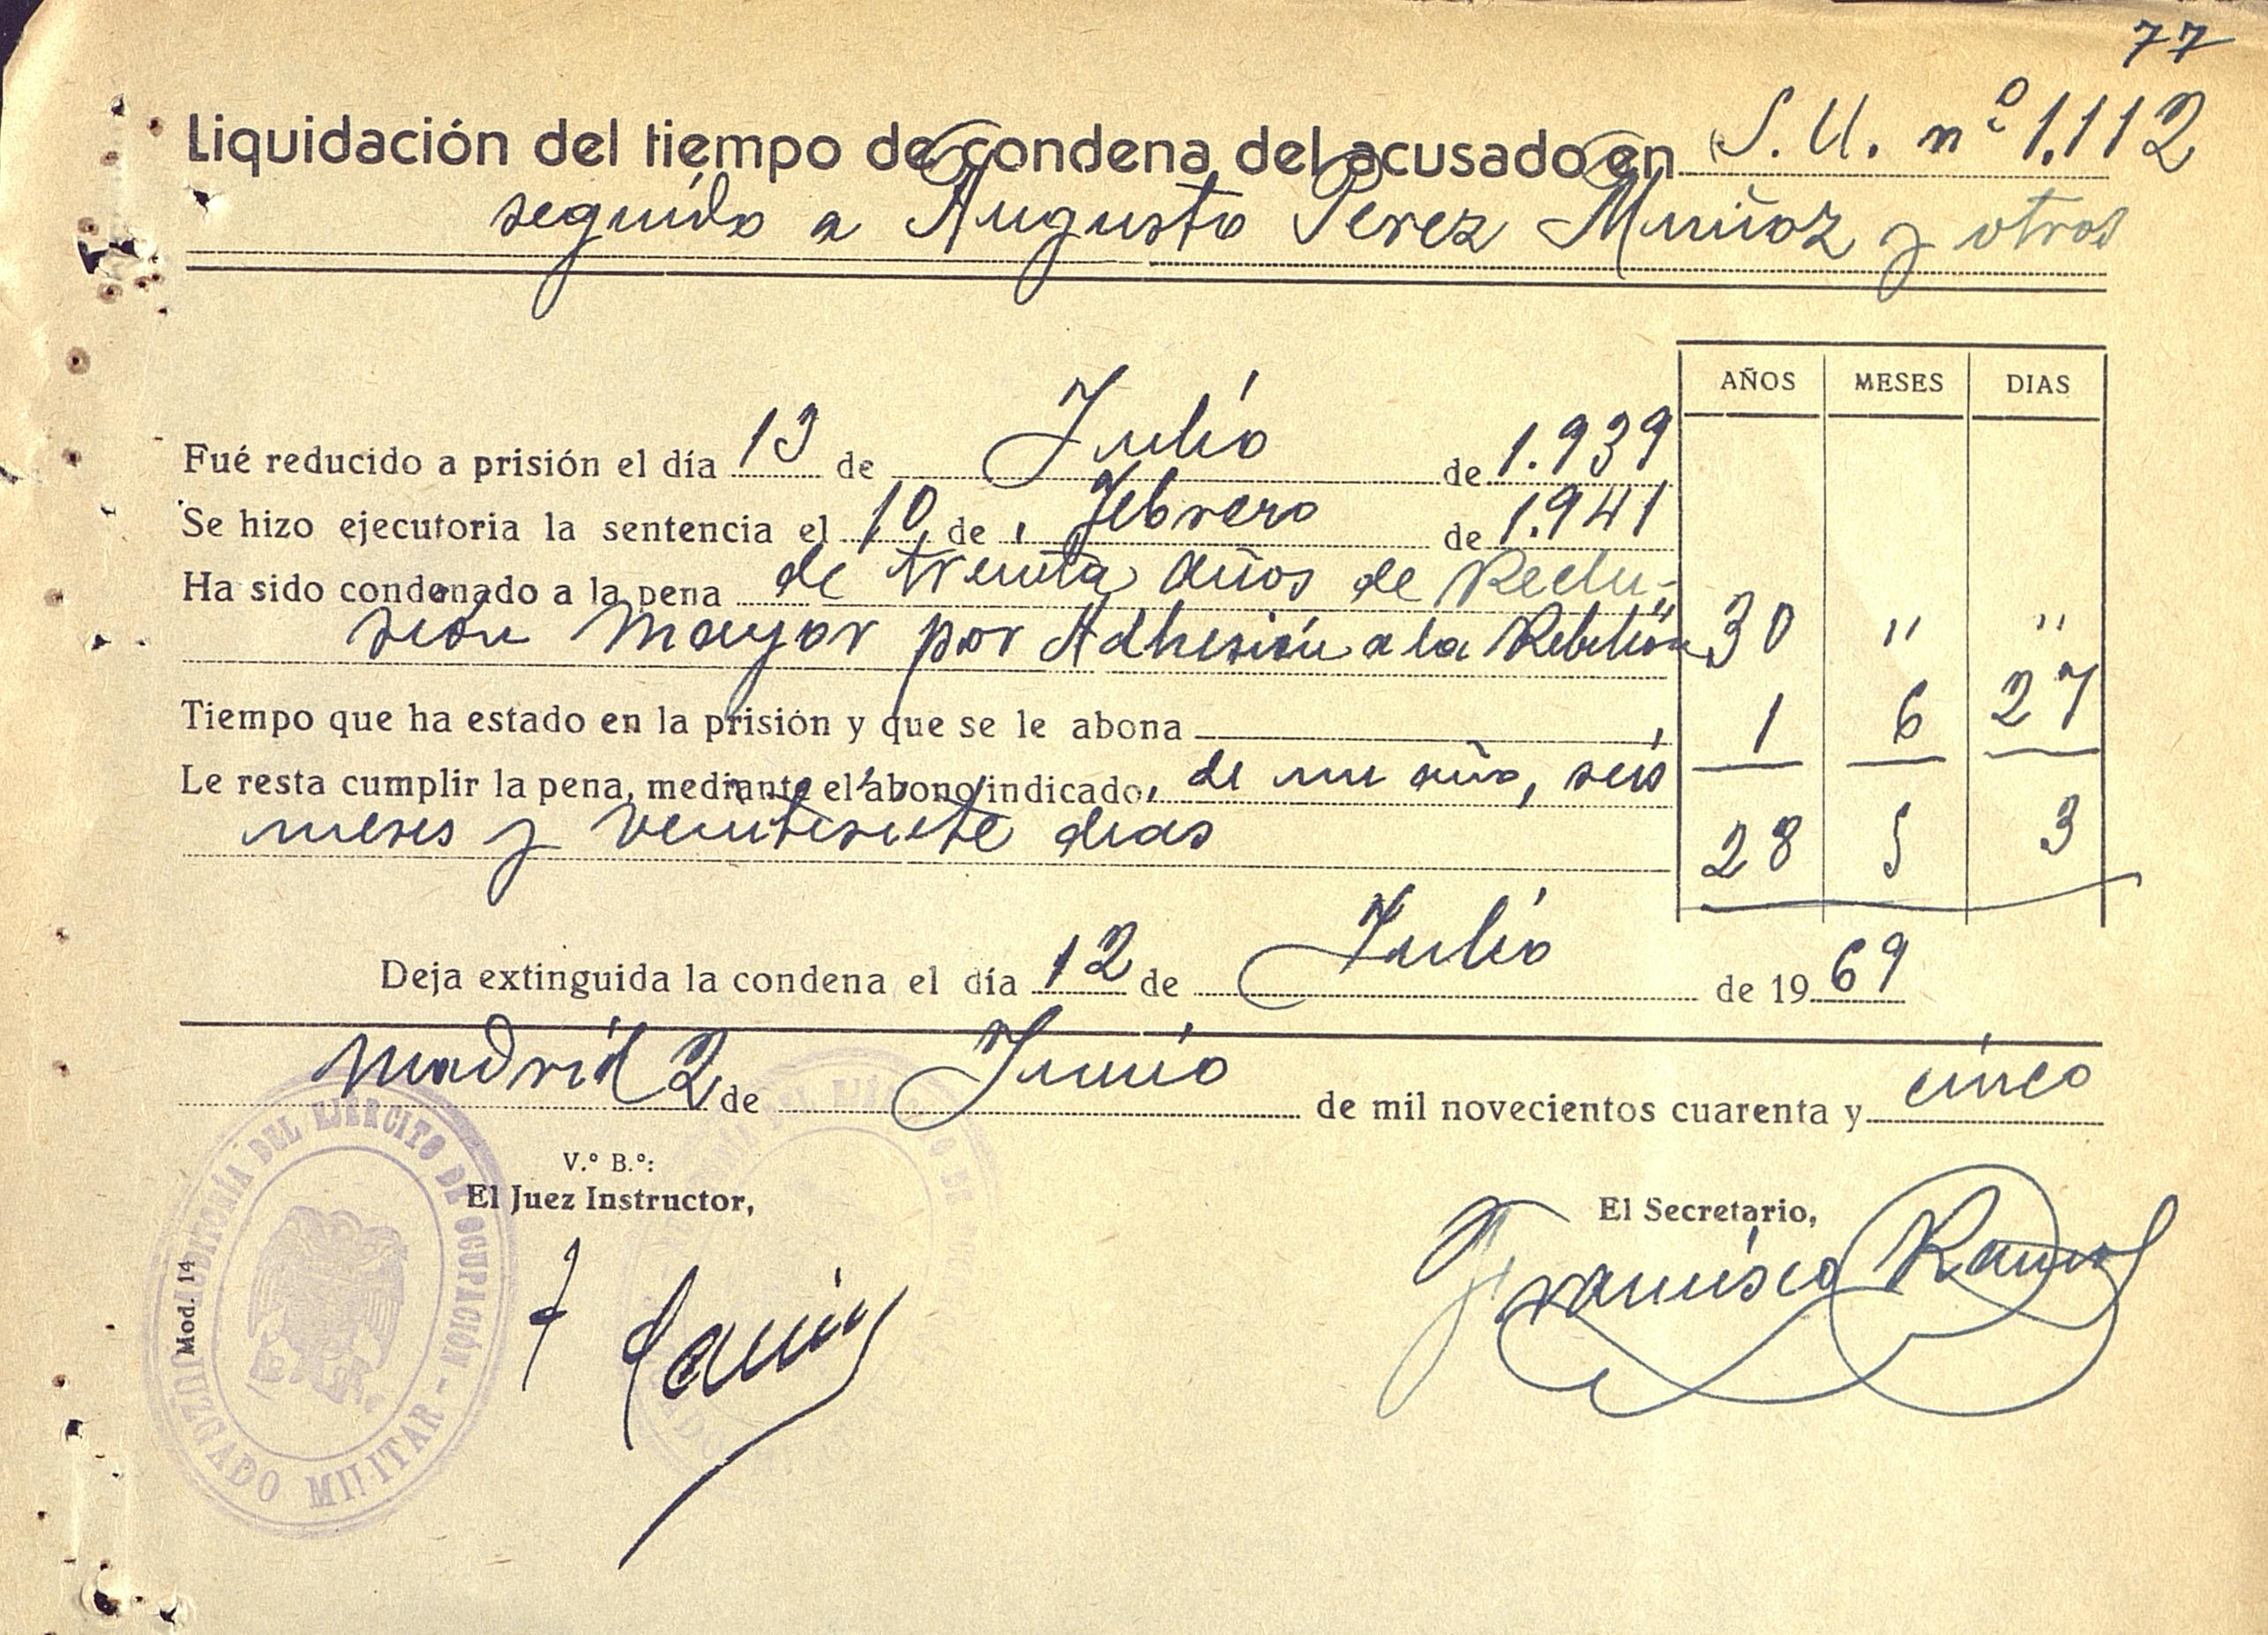 77
Liquidación del tiempo de condena del acusado en S. U. nº 1.112
seguido a Augusto Perez Muñoz y otros
AÑOS MESES DIAS
Fué reducido a prisión el día 13 de Julio de 1.939
Se hizo ejecutoria la sentencia el 10 de Febrero de 1.941
Ha sido condenado a la pena de treinta años de Reclu-
sión Mayor por Adhesión a la Rebelión 30 " "
Tiempo que ha estado en la prisión y que se le abona 1 6 27
Le resta cumplir la pena, mediante el abono indicado, de un año, seis
meses y veintisiete dias 28 5 3
Deja extinguida la condena el día 12 de Julio de 1969
Madrid 2 de Junio de mil novecientos cuarenta y cinco
V.º B.º:
El Juez Instructor,
El Secretario,
Francisco Ramos
Mod. 14
AUDITORÍA DEL EJÉRCITO DE OCUPACIÓN - JUZGADO MILITAR